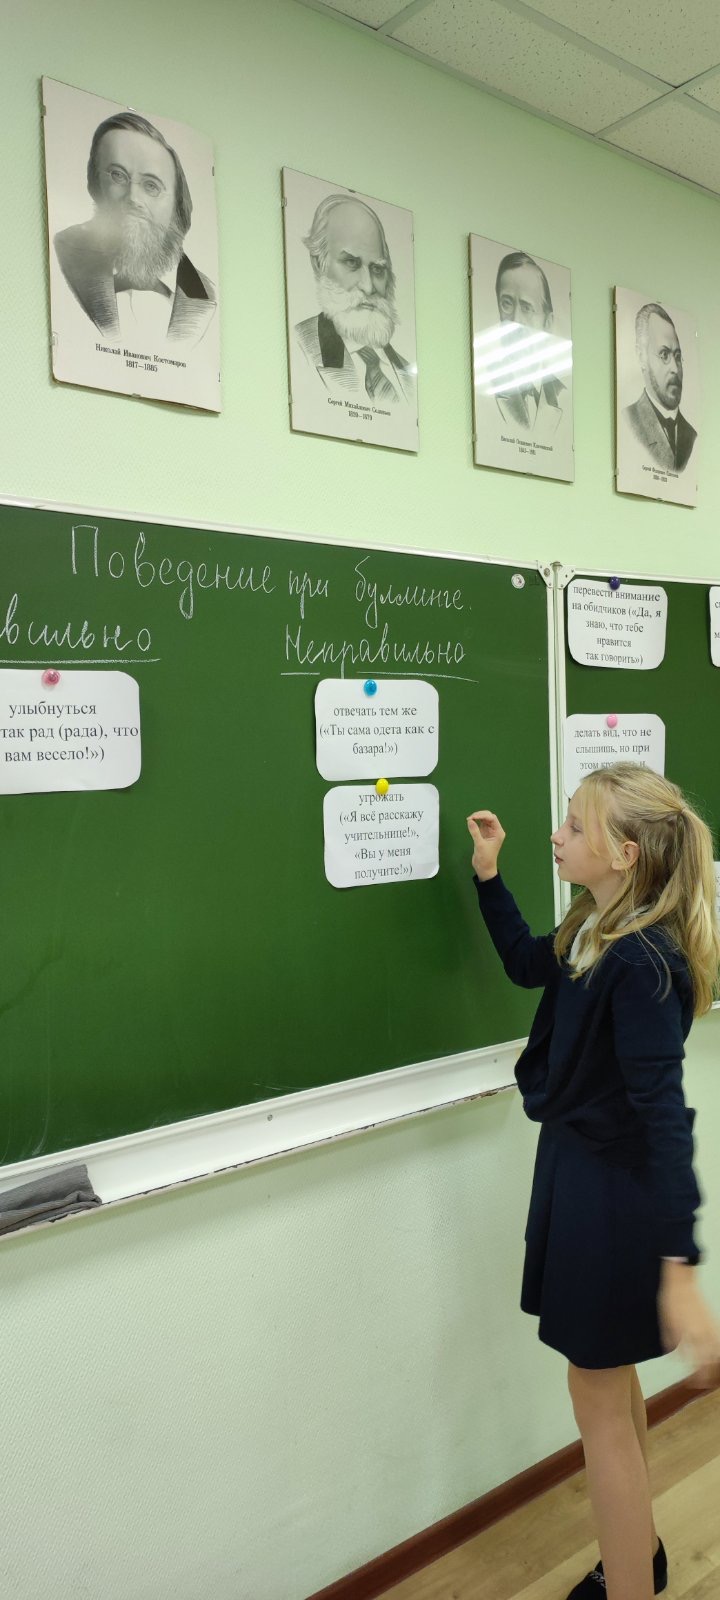 Николай Иванович Костомаров
1817—1885
Сергей Михайлович Соловьев
1820—1879
Василий Осипович Ключевский
Сергей Федорович
Поведение при буллинге.
вильно
Неправильно
улыбнуться
так рад (рада), что
вам весело!»)
отвечать тем же
(«Ты сама одета как с
базара!»)
угрожать
(«Я всё расскажу
учительнице!»,
«Вы у меня
получите!»)
перевести внимание
на обидчиков («Да, я
знаю, что тебе
нравится
так говорить»)
делать вид, что не
слышишь, но при
этом